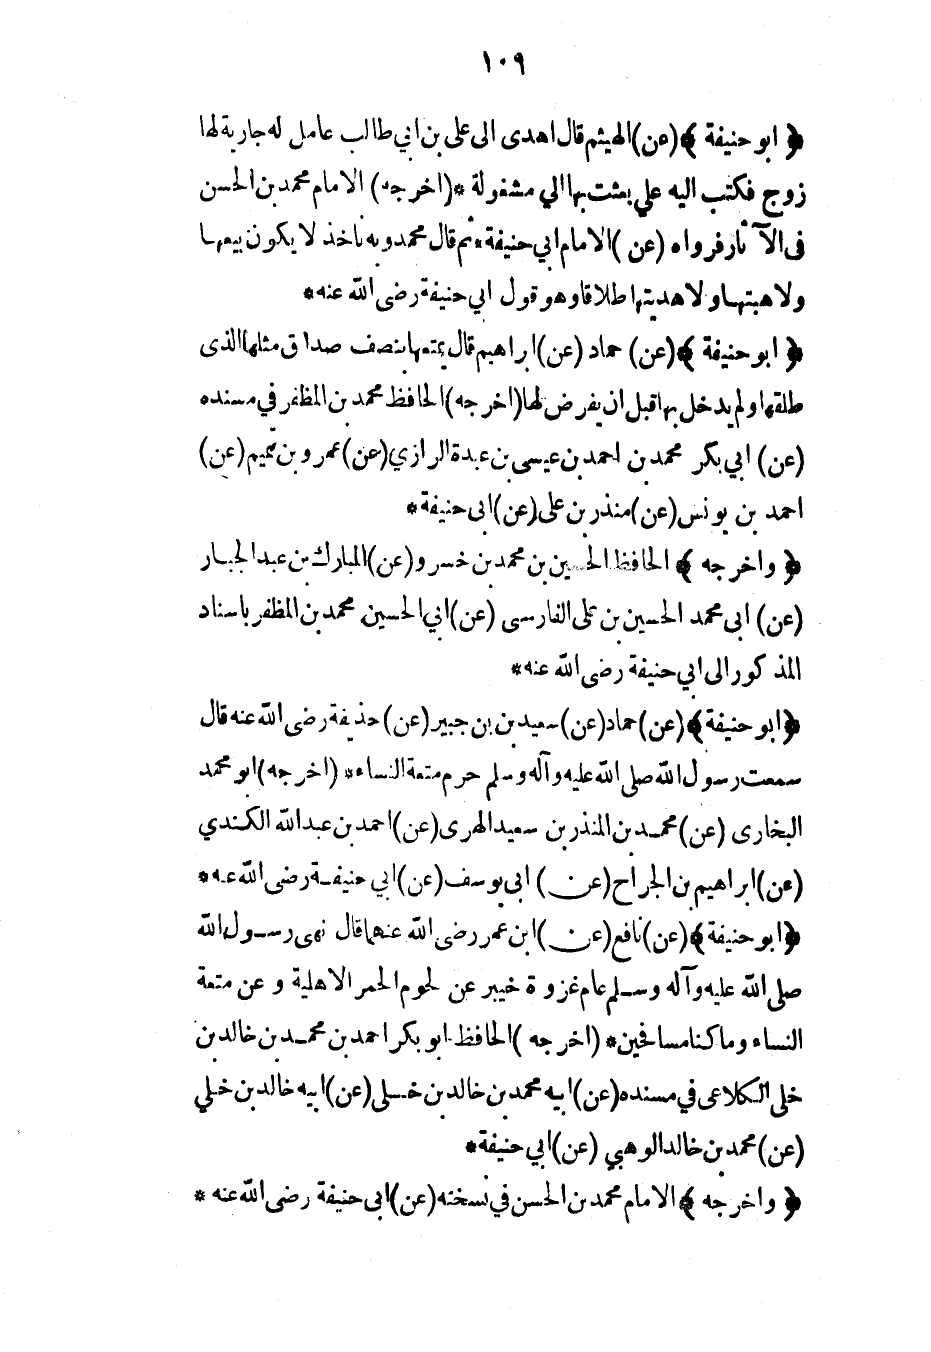 ١٠٩
﴿ ابو حنيفة ﴾ (عن) الهيثم قال اهدى الى على بن ابي طالب عامل له جارية لها
زوج فكتب اليه علي بعثت بها الي مشغولة * (اخرجه) الامام محمد بن الحسن
فى الآثار فرواه (عن) الامام ابي حنيفة * ثم قال محمد وبه نأخذ لا يكون بيعها
ولا هبتها ولا هديتها طلاقا وهو قول ابي حنيفة رضى الله عنه *
﴿ ابو حنيفة ﴾ (عن) حماد (عن) ابراهيم قال يمتعها بنصف صداق مثلها الذى
طلقها ولم يدخل بها قبل ان يفرض لها (اخرجه) الحافظ محمد بن المظفر في مسنده
(عن) ابي بكر محمد بن احمد بن عيسى بن عبدة الرازي (عن) عمرو بن تميم (عن)
احمد بن يونس (عن) منذر بن على (عن) ابى حنيفة *
﴿ واخرجه ﴾ الحافظ الحسين بن محمد بن خسرو (عن) المبارك بن عبد الجبار
(عن) ابى محمد الحسين بن على الفارسى (عن) ابي الحسين محمد بن المظفر باسناد
المذكور الى ابي حنيفة رضى الله عنه *
﴿ ابو حنيفة ﴾ (عن) حماد (عن) سعيد بن بن جبير (عن) حذيفة رضى الله عنه قال
سمعت رسول الله صلى الله عليه وآله وسلم حرم متعة النساء * (اخرجه) ابو محمد
البخارى (عن) محمد بن المنذر بن سعيد الهرى (عن) احمد بن عبد الله الكندي
(عن) ابراهيم بن الجراح (عن) ابى يوسف (عن) ابي حنيفة رضى الله عنه *
﴿ ابو حنيفة ﴾ (عن) نافع (عن) ابن عمر رضى الله عنهما قال نهى رسول الله
صلى الله عليه وآله وسلم عام غزوة خيبر عن لحوم الحمر الاهلية و عن متعة
النساء وما كنا مسافحين * (اخرجه) الحافظ ابو بكر احمد بن محمد بن خالد بن
خلى الكلاعى في مسنده (عن) ابيه محمد بن خالد بن خلى (عن) ابيه خالد بن خلي
(عن) محمد بن خالد الوهبي (عن) ابي حنيفة *
﴿ واخرجه ﴾ الامام محمد بن الحسن في نسخته (عن) ابى حنيفة رضى الله عنه *